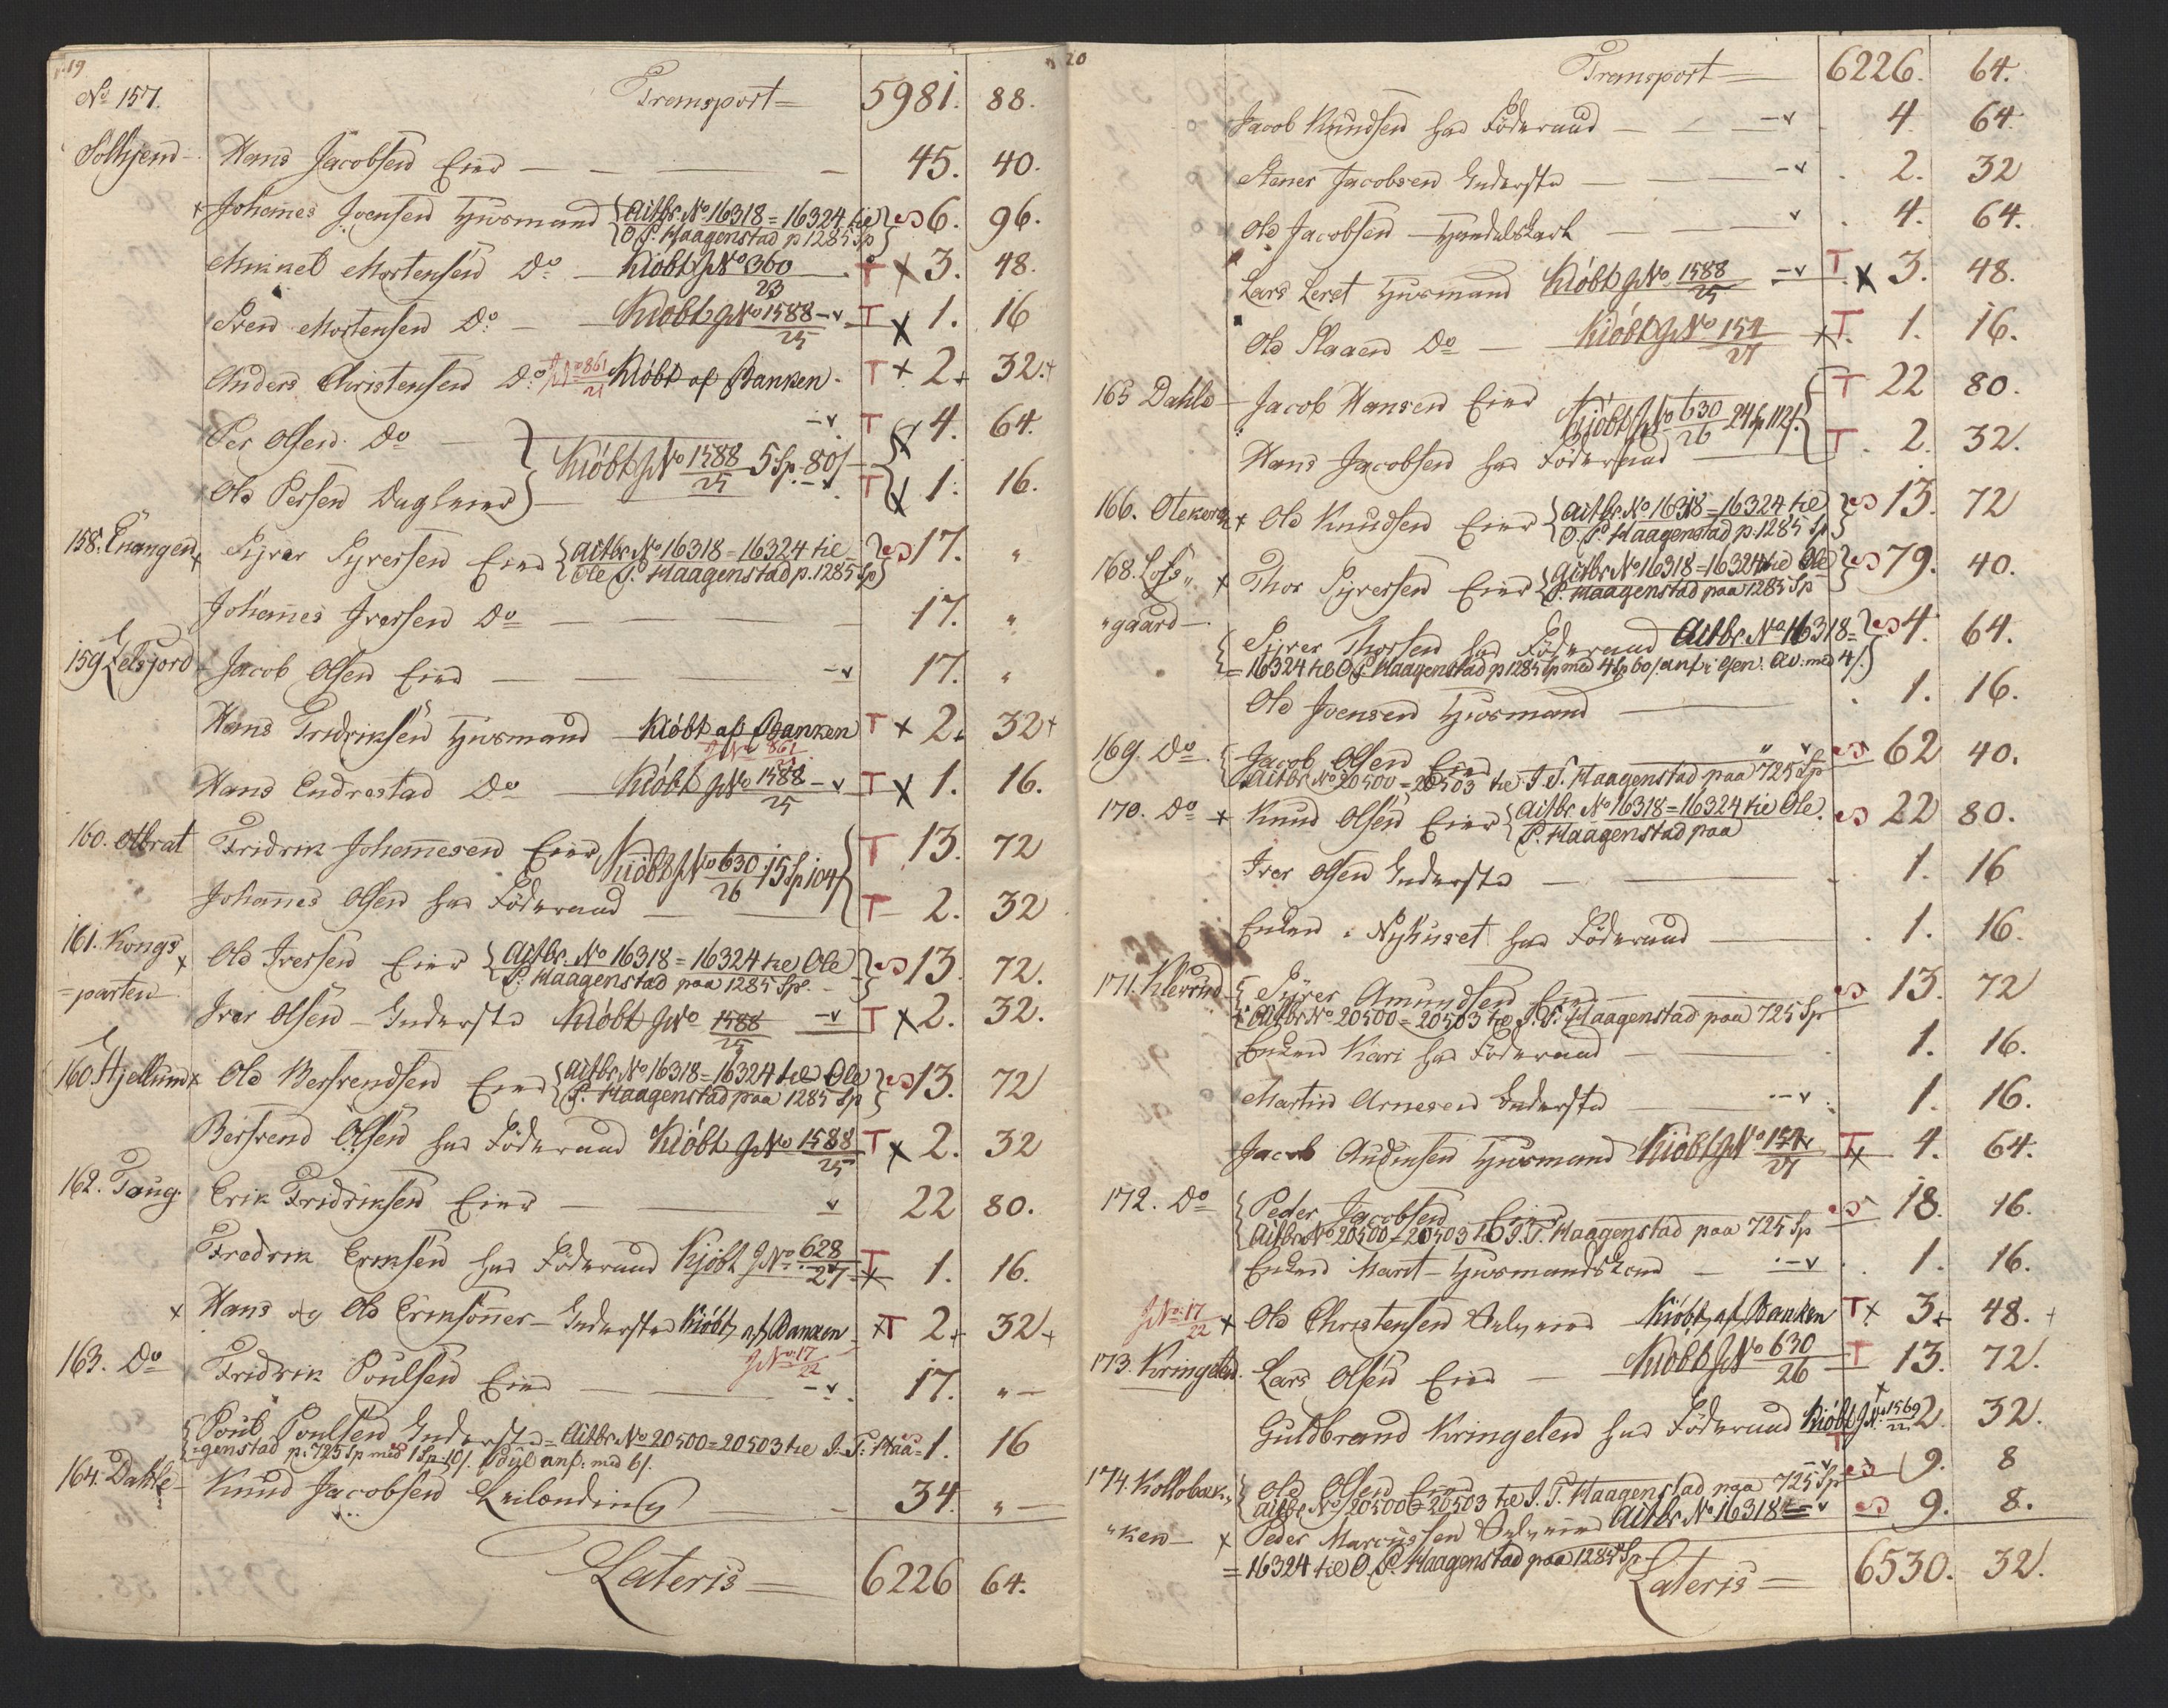 p. 19
No 157. Transport = 5981. 88.
Solhjem - Hans Jacobsen Eier — 45. 40.
x Johannes Joensen Huusmand {Aitbr. No 16318 = 16324 til} 6. 96.
{O. P. Haagenstad p 1285 Sp}
Mikkel Mortensen Do - Kiöbt J No 360/23 T x 3. 48.
Sven Mortensen Do - Kiöbt J No 1588/25 -v T x 1. 16
Anders Christensen Do J No 861/21 Kiöbt af Banken - T x 2. 32.+
Per Olsen Do — -v T x 4. 64.
Kiöbt J No 1588/25 5 Sp. 80 /
Ole Persen Dagleier — T x 1. 16.
158. Enangen x Syver Syversen Eier {Aitbr. No 16318 = 16324 til} 17. "
{Ole P. Haagenstad p. 1285 Sp}
Johannes Iversen Do — 17. "
159 Selsjord - Jacob Olsen Eier — -v 17. "
Hans Fridriksen Huusmand Kiöbt af Banken T x 2. 32+
J No 861/21
Hans Endrestad Do — Kiöbt J No 1588/25 -v T x 1. 16.
160. Olbrat Fridrik Johannesen Eier T 13. 72
Kiöbt J No 630/26 15 Sp 104 /
Johannes Olsen har Föderaad — T 2. 32
161. Kongs x Ole Iversen Eier {Aitbr. No 16318 = 16324 til Ole} 13. 72.
=parten {P. Haagenstad paa 1285 Sp.}
Iver Olsen - Inderste Kiöbt J No 1588/25 -v T x 2. 32.
160 Hjellum x Ole Berfvendsen Eier {Aitbr. No 16318 = 16324 til Ole} 13. 72
{P. Haagenstad paa 1285 Sp}
Berfvend Olsen har Föderaad Kiöbt J No 1588/25 T x 2. 32
162. Taug. Erik Fridriksen Eier — v 22 80.
Fredrik Eriksen har Föderaad Kjöbt J No. 628/27 T x 1. 16.
x Hans og Ole Eriksönner - Inderster Kiöbt af Banken x T 2. 32+
J No. 17/22
163. Do Fridrik Poulsen Eier — -v. 17. " -
{Poul Poulsen Inderste = Aitbr. No 20500 = 20503 til I. P. Haa= 1. 16
{=genstad p. 725 Sp med 1 Sp 10 /. anf: med 6 /.
164. Dahle - Knud Jacobsen Leilænding — 34. " -
Lateris = 6226 64.
p 20
Transport = 6226. 64.
Jacob Knudsen har Föderaad — -v 4. 64.
Stener Jacobsen Inderste — -v 2. 32
Ole Jacobsen - Handelskarl — v 4. 64.
Lars Leret Huusmand Kiöbt J No 1588/25 -v T x 3. 48.
Ole Plaaen Do — Kiöbt J No 154/27 x T. 1. 16.
165 Dahle - Jacob Hansen Eier T 22 80.
Kjöbt J No 630/26 24 Sp 112 /.
Hans Jacobsen har Föderaad — T. 2. 32.
166. x Ole Knudsen Eier {Aitbr. No 16318 = 16324 til} 13. 72
{O. P. Haagenstad p. 1285 Sp}
168. Lofs " x Thor Syversen Eier {Aitbr No 16318 = 16324 til Ole} 79. 40.
{P. Haagenstad paa 1285 Sp}
" gaard - {Syver Thorsen har Föderaad Aitbr. No 16318 = 4. 64.
= 16324 til O. P. Haagenstad p 1285 Sp med 4 Sp 60 /. anf i Gen. Av: med 4 /.}
Ole Joensen Huusmand — 1. 16.
169. Do {Jacob Olsen Eier — " v 62 40.
{Aitbr No 20500 = 20503 til I. P. Haagenstad paa 725 Sp
170. Do x Knud Olsen Eier {Aitbr. No 16318 = 16324 til Ole. 22 80.
{P. Haagenstad paa
Iver Olsen Inderste — 1. 16
Enken i Nyhuset har Föderaad — 1. 16.
171. Klevrud - {Syver Amundsen Eier — 13. 72
{x Aitbr. No 20500 = 20503 til I. P. Haagenstad paa 725 Sp
Enken Kari har Föderaad — 1. 16.
Martin Arnesen Inderste — -v 1. 16.
Jacob Audensen Huusmand Kiöbt J No 154/27 T x 4. 64.
172. Do {Peder Jacobsen Eier — 18. 16.
{Aitbr No 20500 = 20503 til I. P. Haagenstad paa 725 Sp
Enken Marit - Huusmandskone — -v 1. 16.
J No. 17/22 x Ole Christensen Selveier Kiöbt af Banken T x 3. 48. +
173. Kringelen. Lars Olsen Eier — Kiöbt J No 630/26 T 13. 72.
Guldbrand Kringelen har Föderaad Kiöbt J N. 1569/22 T 2. 32.
174. Kollobæk " {Ole Olsen Eier -v 9. 8
{Aitbr. No 20500 = 20503 til I. P. Haagenstad paa 725 Sp
" ken - x Peder Marcussen Selveier Aitbr No 16318 = v 9. 8.
= 16324 til O. P. Haagenstad paa 1285 Sp
Lateris = 6530. 32.